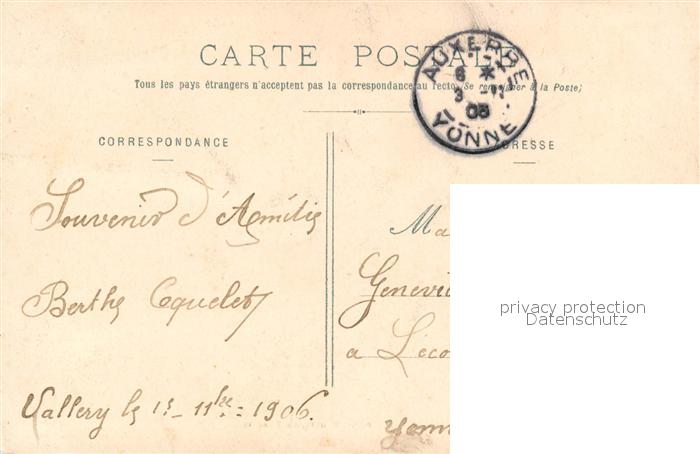 CARTE POSTALE
Tous les pays étrangers n'acceptent pas la correspondance au recto (Se renseigner à la Poste)
AUXERRE
6 *
3 -11
06
YONNE
CORRESPONDANCE
ADRESSE
Souvenir d'Amitié
Berthe Coquelet
Vallery le 1s - 11bre = 1906.
Ma
Genevi
a Lico
Yonn
privacy protection
Datenschutz